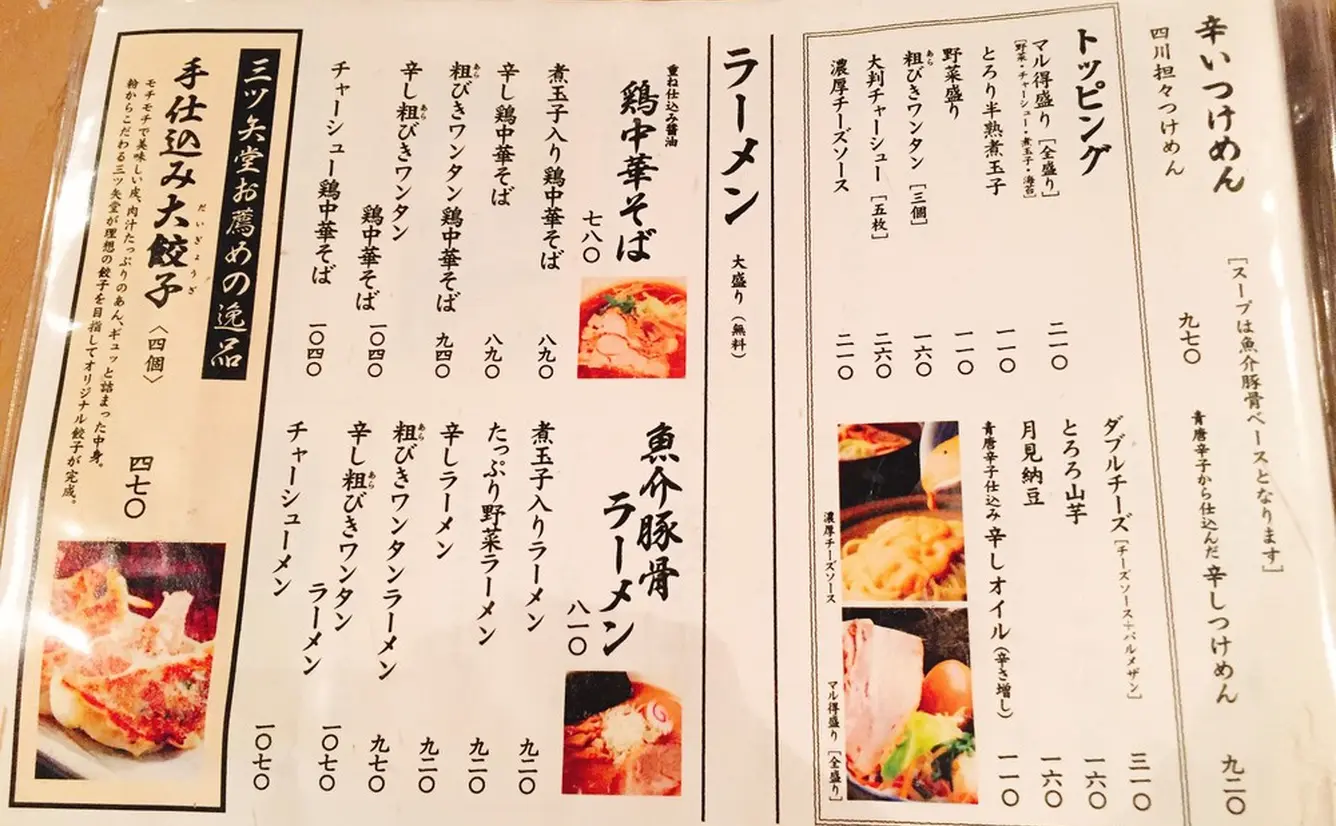 辛いつけめん
[スープは魚介豚骨ベースとなります]
四川担々つけめん
九七〇
青唐辛子から仕込んだ辛しつけめん
九二〇
トッピング
マル得盛り[全盛り]
[野菜・チャーシュー・煮玉子・海苔]
二一〇
とろり半熟煮玉子
一一〇
野菜盛り
一一〇
粗びきワンタン[三個]
あら
一六〇
大判チャーシュー[五枚]
二六〇
濃厚チーズソース
二一〇
ダブルチーズ[チーズソース+パルメザン]
三一〇
とろろ山芋
一六〇
月見納豆
一六〇
青唐辛子仕込み辛しオイル(辛さ増し)
一一〇
濃厚チーズソース
マル得盛り[全盛り]
ラーメン
大盛り(無料)
重ね仕込み醤油
鶏中華そば
七八〇
煮玉子入り鶏中華そば
八九〇
辛し鶏中華そば
八九〇
粗びきワンタン鶏中華そば
あら
九四〇
辛し粗びきワンタン
あら
鶏中華そば
一〇四〇
チャーシュー鶏中華そば
一〇四〇
魚介豚骨
ラーメン
八一〇
煮玉子入りラーメン
九二〇
たっぷり野菜ラーメン
九二〇
辛しラーメン
九二〇
粗びきワンタンラーメン
あら
九七〇
辛し粗びきワンタン
あら
ラーメン
一〇七〇
チャーシューメン
一〇七〇
三ツ矢堂お薦めの逸品
手仕込み大餃子〈四個〉
だいぎょうざ
四七〇
モチモチで美味しい皮、肉汁たっぷりのあん、ギュッと詰まった中身。
粉からこだわる三ツ矢堂が理想の餃子を目指してオリジナル餃子が完成。